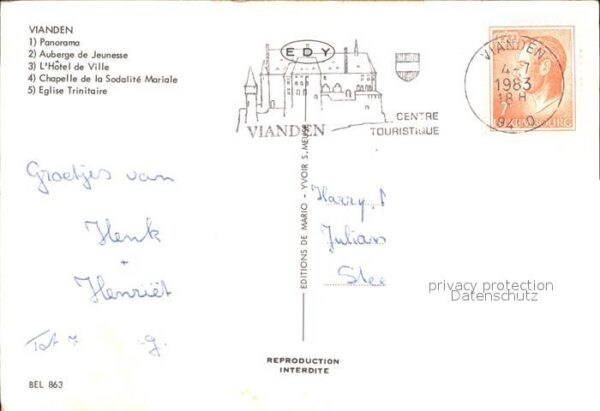 VIANDEN
1) Panorama
2) Auberge de Jeunesse
3) L'Hôtel de Ville
4) Chapelle de la Sodalité Mariale
5) Eglise Trinitaire
EDY
VIANDEN
CENTRE
TOURISTIQUE
VIANDEN
4-7
1983
18H
LUXEMBOURG
Groetjes van
Henk
+
Henriët
Tot
EDITIONS DE MARIO - YVOIR S. MEUSE
Harry
Julian
privacy protection
Datenschutz
REPRODUCTION
INTERDITE
BEL 863